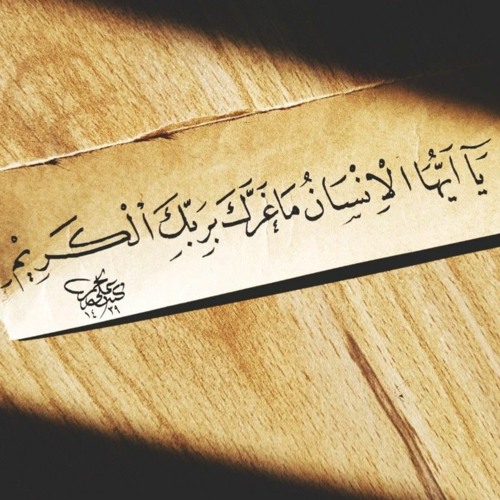 يَآ اَيُّهَا الْاِنْسَانُ مَا غَرَّكَ بِرَبِّكَ الْكَرِيمْ
١٤٢٩